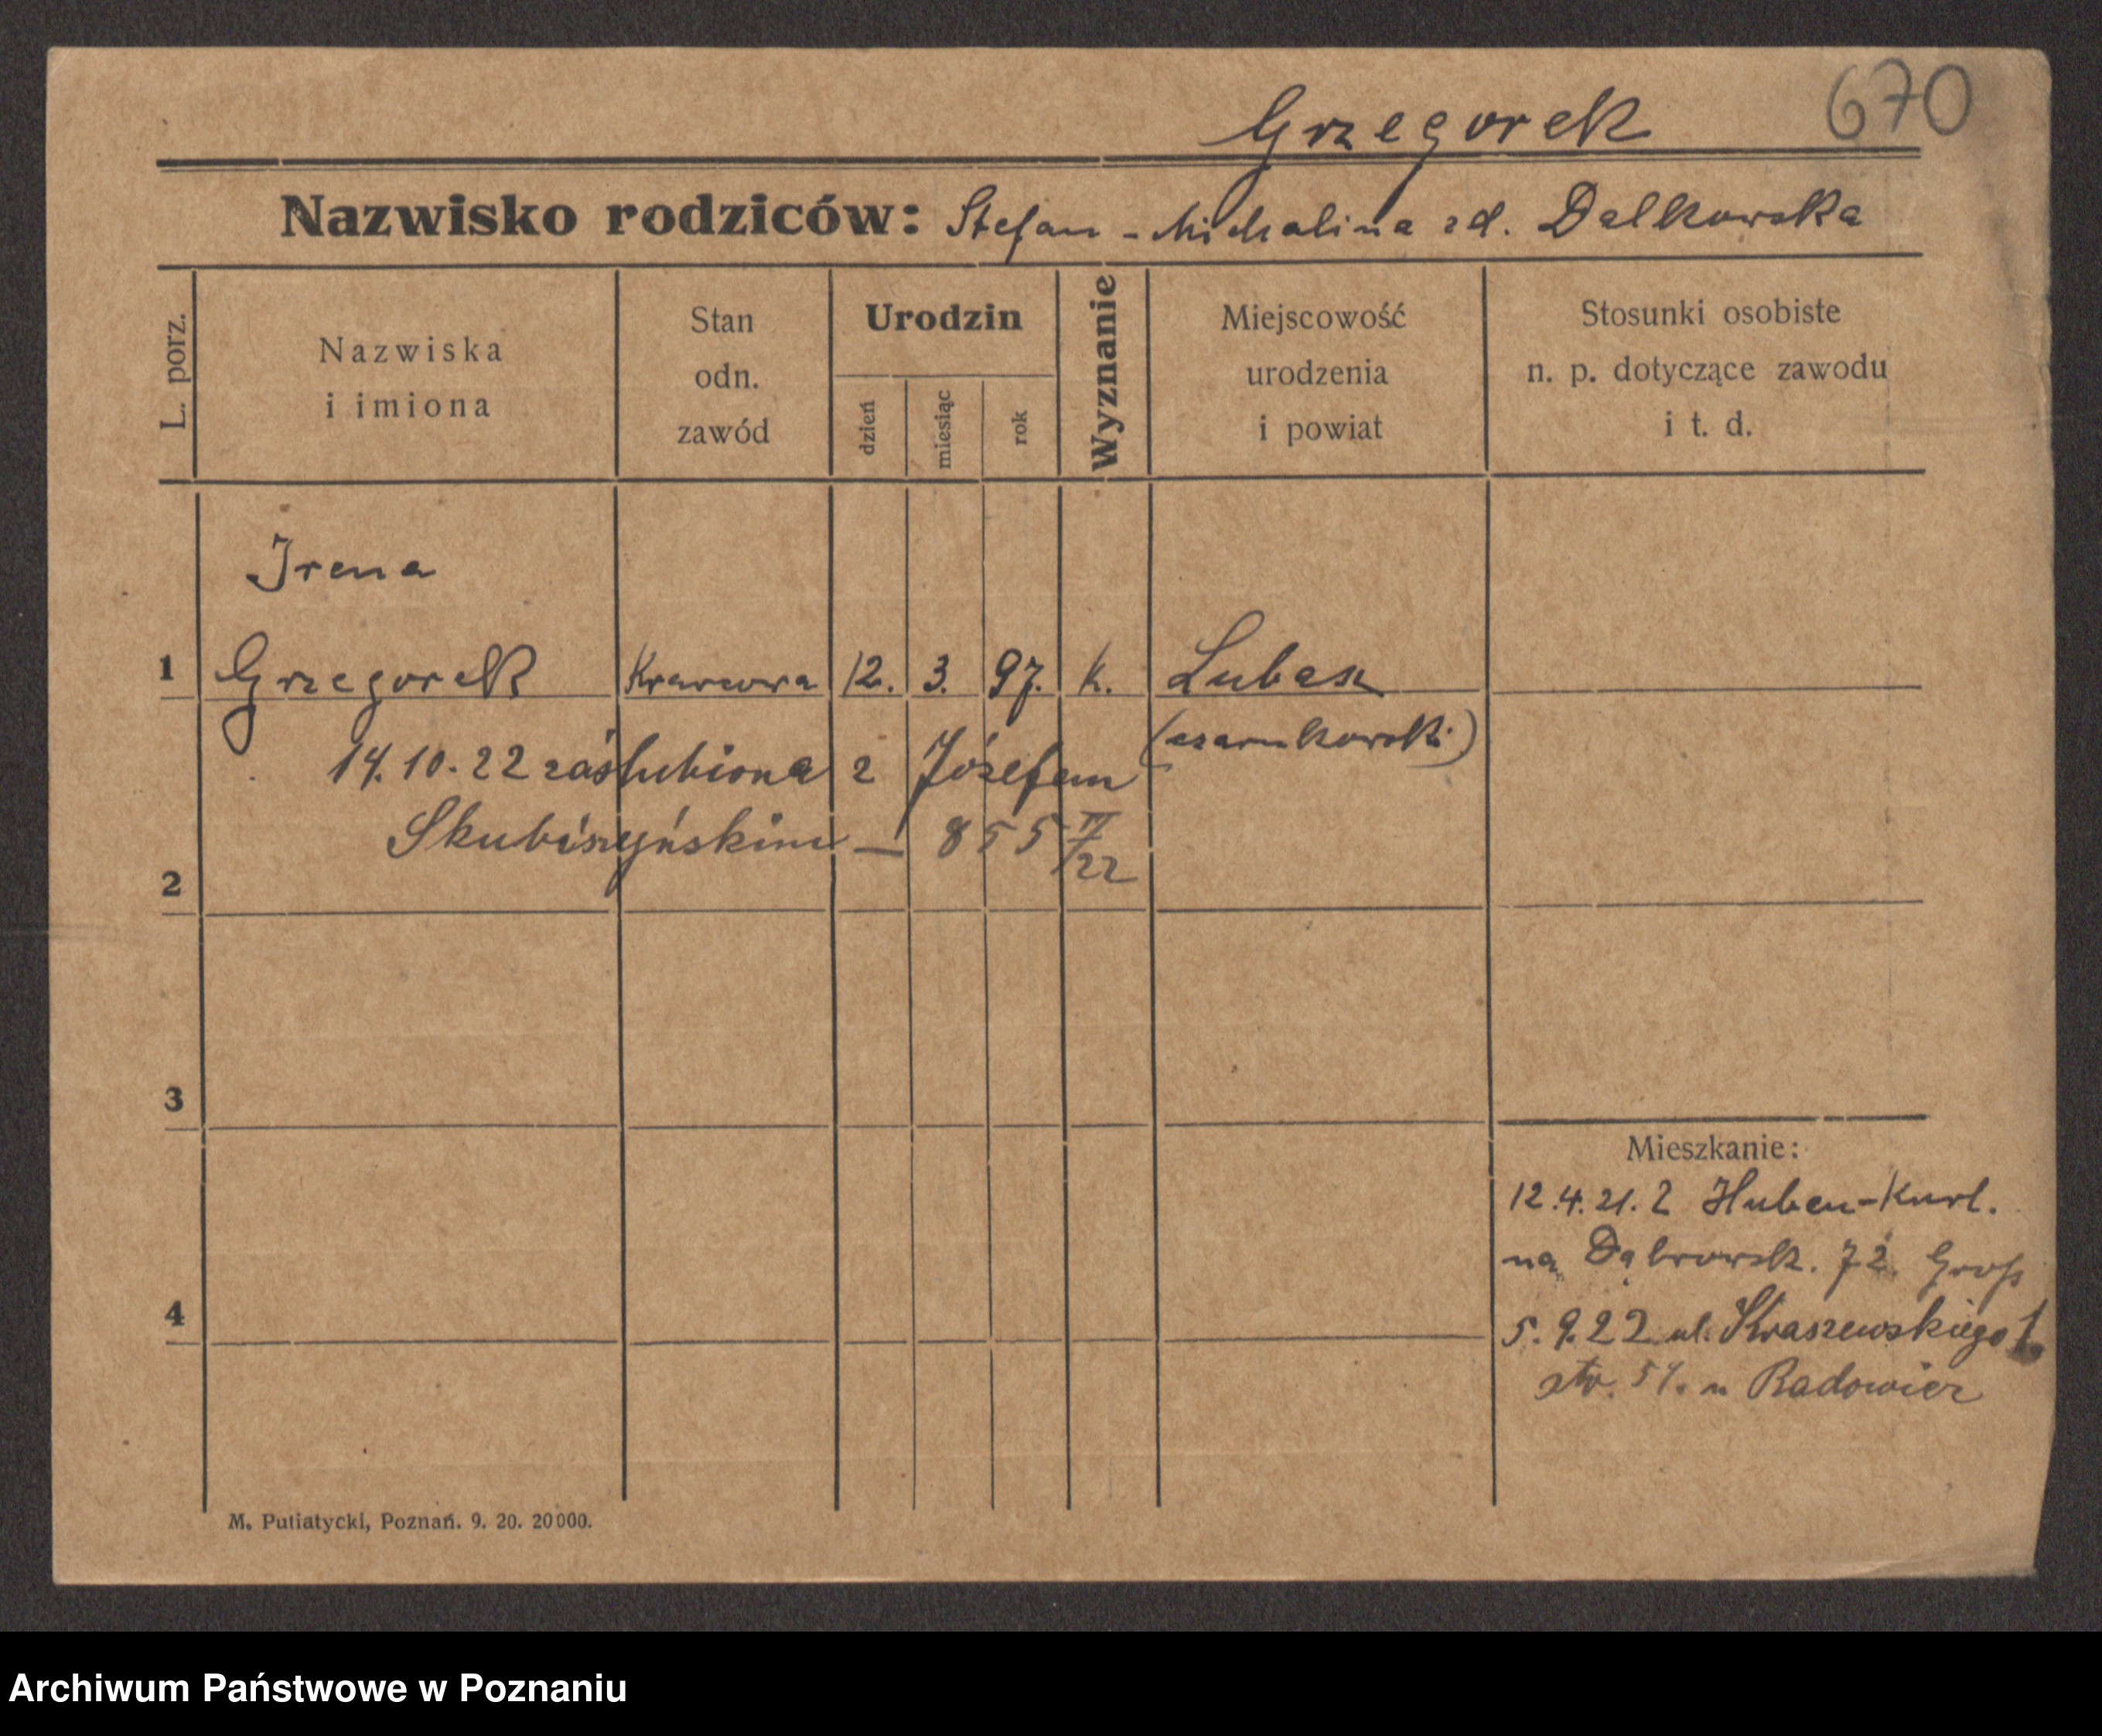 670
Grzegorek
Nazwisko rodziców: Stefan - Michalina zd. Dalkowska
L. porz.
Nazwiska
i imiona
Stan
odn.
zawód
Urodzin
dzień
miesiąc
rok
Wyznanie
Miejscowość
urodzenia
i powiat
Stosunki osobiste
n. p. dotyczące zawodu
i t. d.
Irena
1 Grzegorek Krawcowa 12. 3. 97. k. Lubasz
(czarnkowski)
14.10.22 zaślubiona z Józefem
Skubiszyńskim — 855 IV/22
2
3
4
Mieszkanie:
12.4.21. z Huben-Kurl.
na Dąbrowsk. 72. Groß
5.9.22 ul. Kraszewskiego 1.
ptr. u Radowicz
M. Putiatycki, Poznań. 9. 20. 20000.
Archiwum Państwowe w Poznaniu